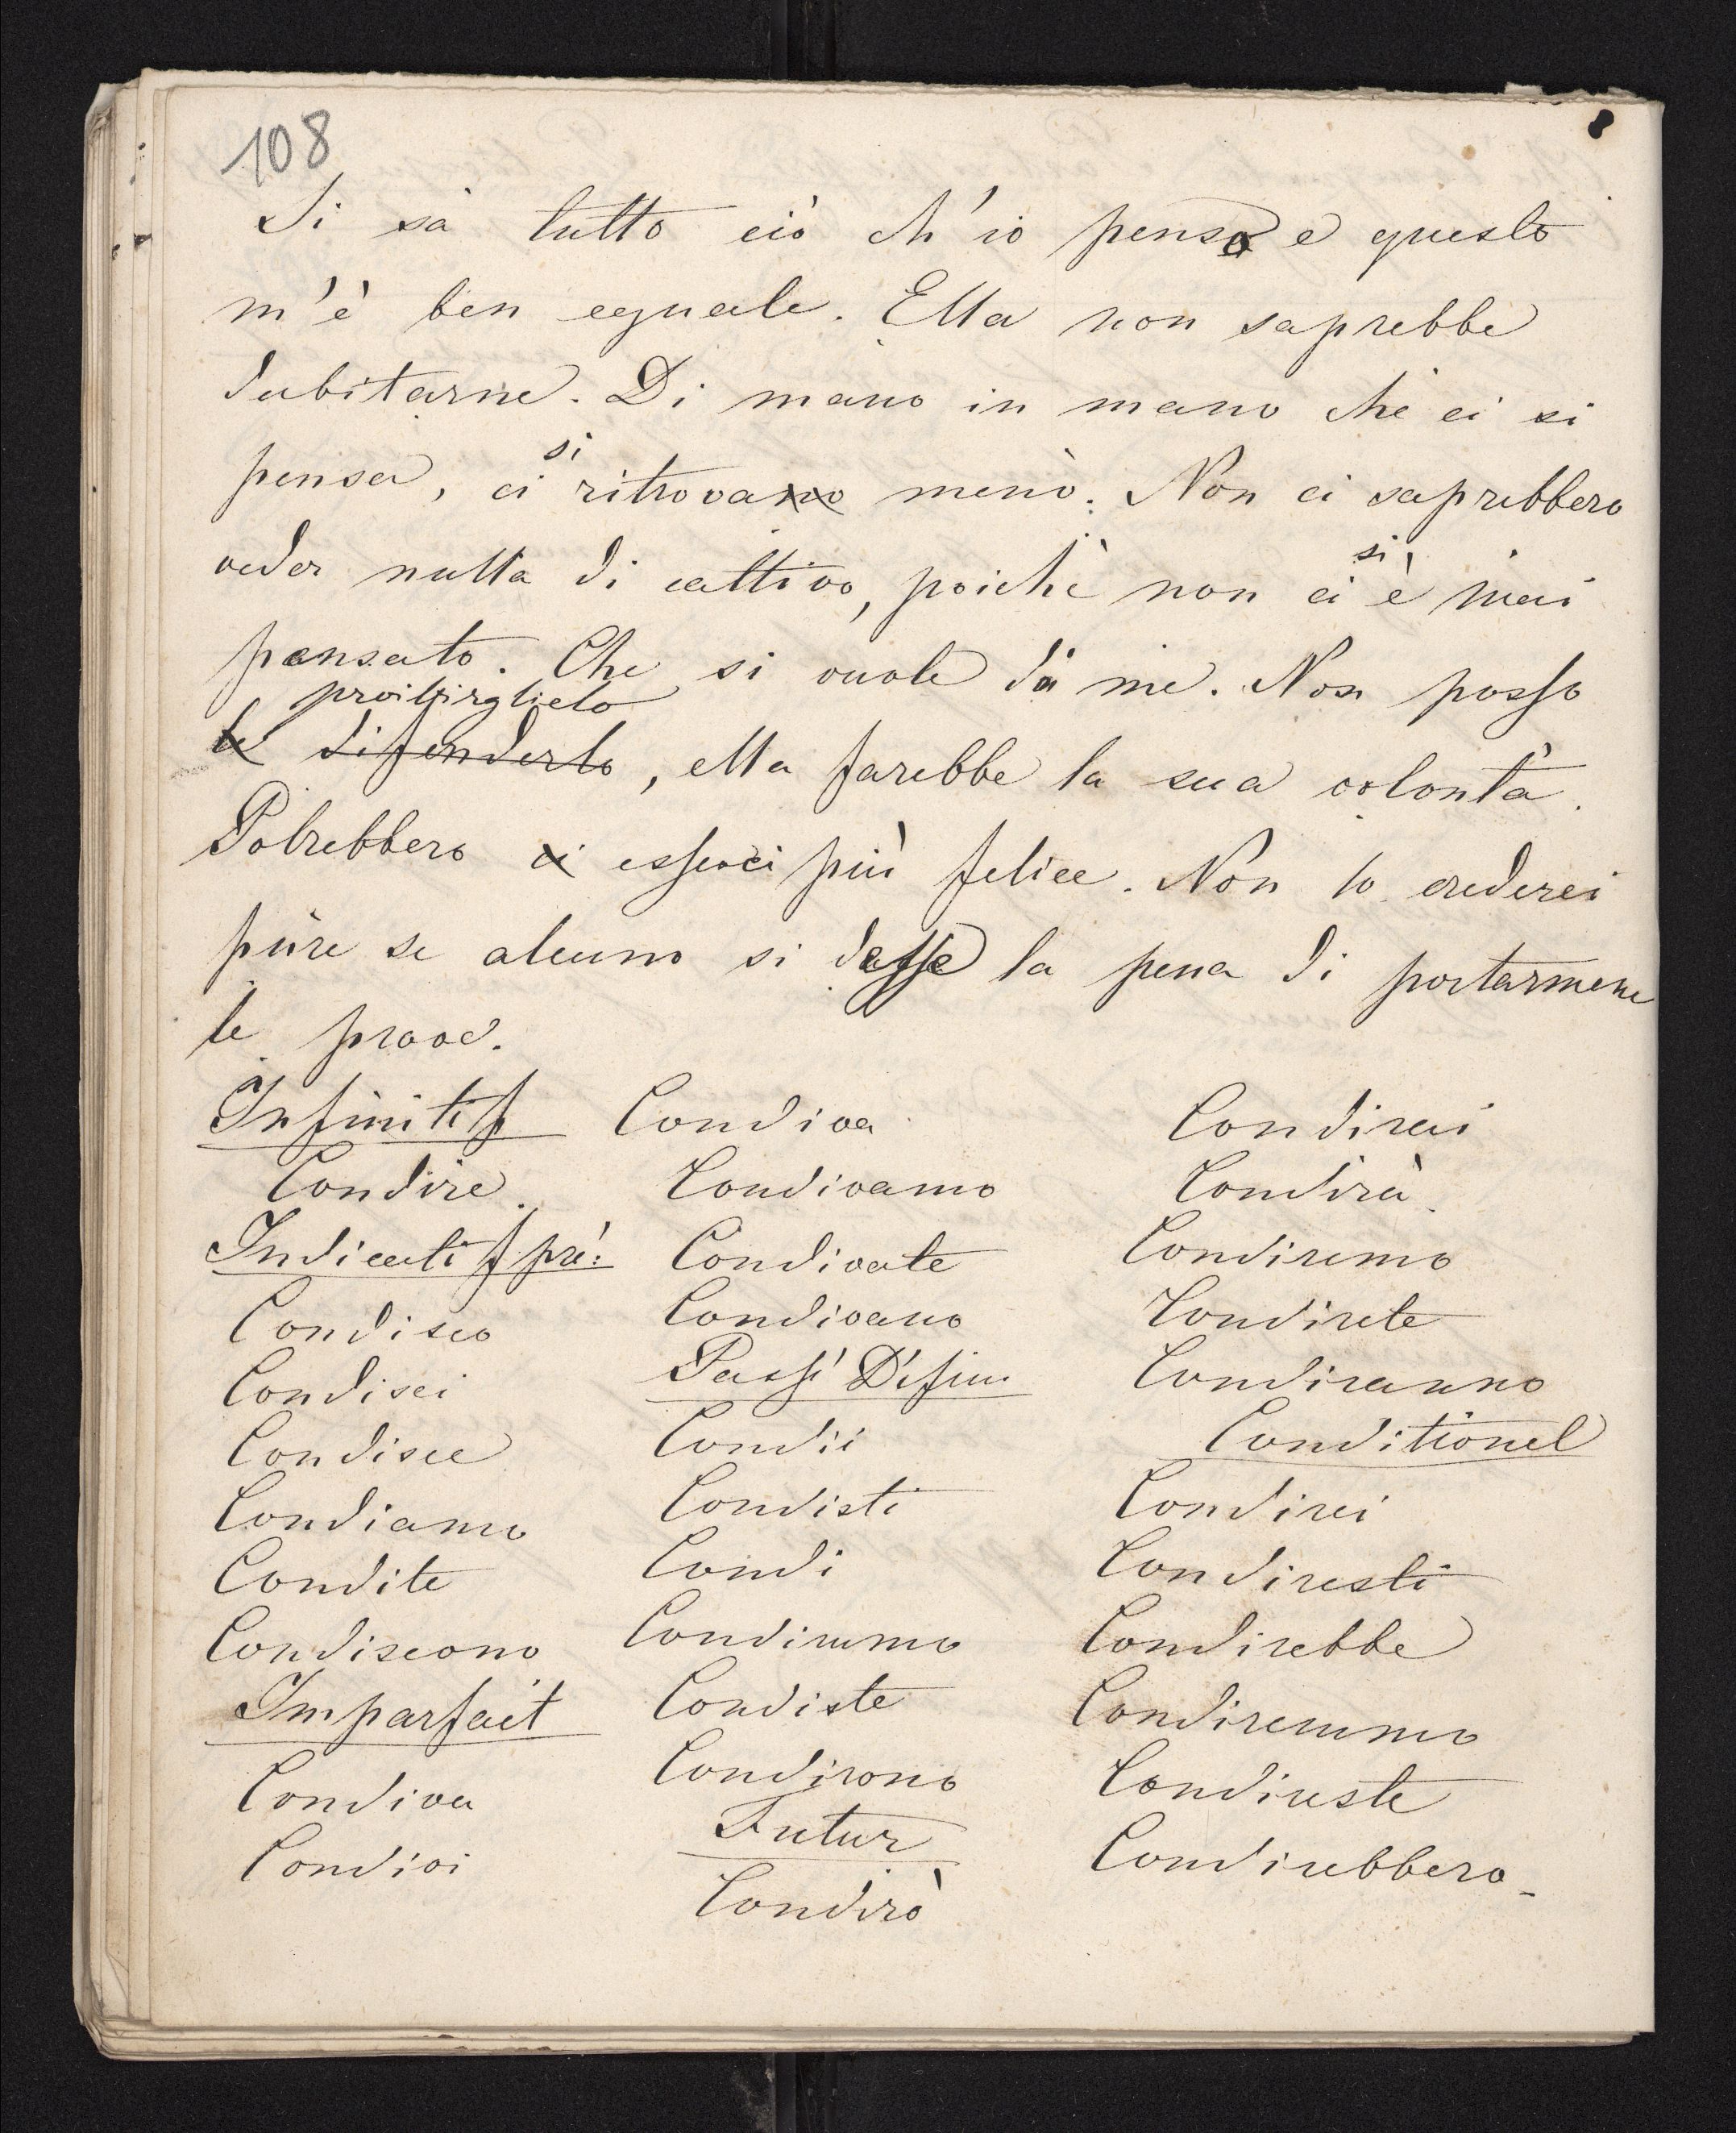 108
Si sà tutto ciò ch'io penso e questo
m'è ben eguale. Ella non saprebbe
dubitarne. Di mano in mano chè ci si
pensa, ci si ritrovano meno. Non ci saprebbero
veder nulla di cattivo, poichè non ci si è mai
pensato. Che si vuole da me. Non posso
proibirglielo
le difenderlo, ella farebbe la sua volontà.
Potrebbero ci esserci più felice. Non lo crederei
pùre se alcuno si desse la pena di portarmene
le prove.
Infinitif
Condire.
Indicatif pré:
Condisco
Condisci
Condisce
Condiamo
Condite
Condiscono
Imparfait
Condiva
Condivi
Condiva
Condivamo
Condivate
Condivano
Passé Défin.
Condii
Condisti
Condi
Condimmo
Condiste
Condirono
Futur
Condirò
Condirai
Condirà
Condiremo
Condirete
Condiranno
Conditionel
Condirei
Condiresti
Condirebbe
Condiremmo
Condireste
Condirebbero